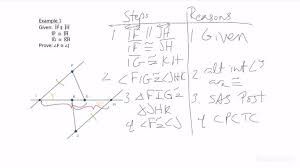 Example 1
Given: IF ∥ JH
IF ≅ JH
IG ≅ KH
Prove: ∠F ≅ ∠J
Steps
Reasons
1 IF ∥ JH
IF ≅ JH
IG ≅ KH
1 Given
2 ∠FIG ≅ ∠JHK
2 alt int ∠'s are ≅
3 △FIG ≅ △JHK
3 SAS Post
4 ∠F ≅ ∠J
4 CPCTC